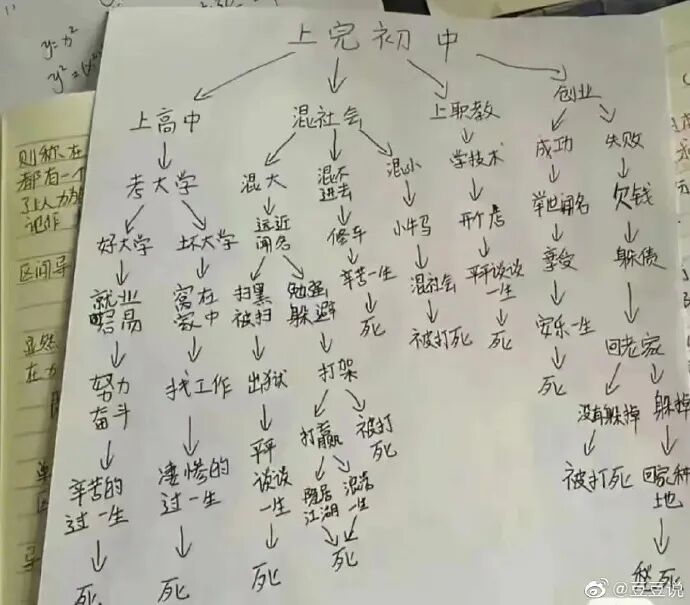 上完初中
上高中
考大学
好大学
就业
容易
努力
奋斗
辛苦的
过一生
死
坏大学
窝在
家中
找工作
凄惨的
过一生
死
混社会
混大
远近
闻名
扫黑
被扫
出狱
平平
谈谈
一生
死
勉强
躲避
打架
打赢
隐居
江湖
浪荡
一生
死
被打
死
混不
进去
修车
辛苦一生
死
混小
小牛马
混社会
被打死
上职教
学技术
开个店
平平谈谈
一生
死
创业
成功
举世闻名
享受
安乐一生
死
失败
欠钱
躲债
回老家
没有躲掉
被打死
躲掉
回家种
地
死
y=x²
则称在
都有一个
区间
显然
在
单
@豆豆说